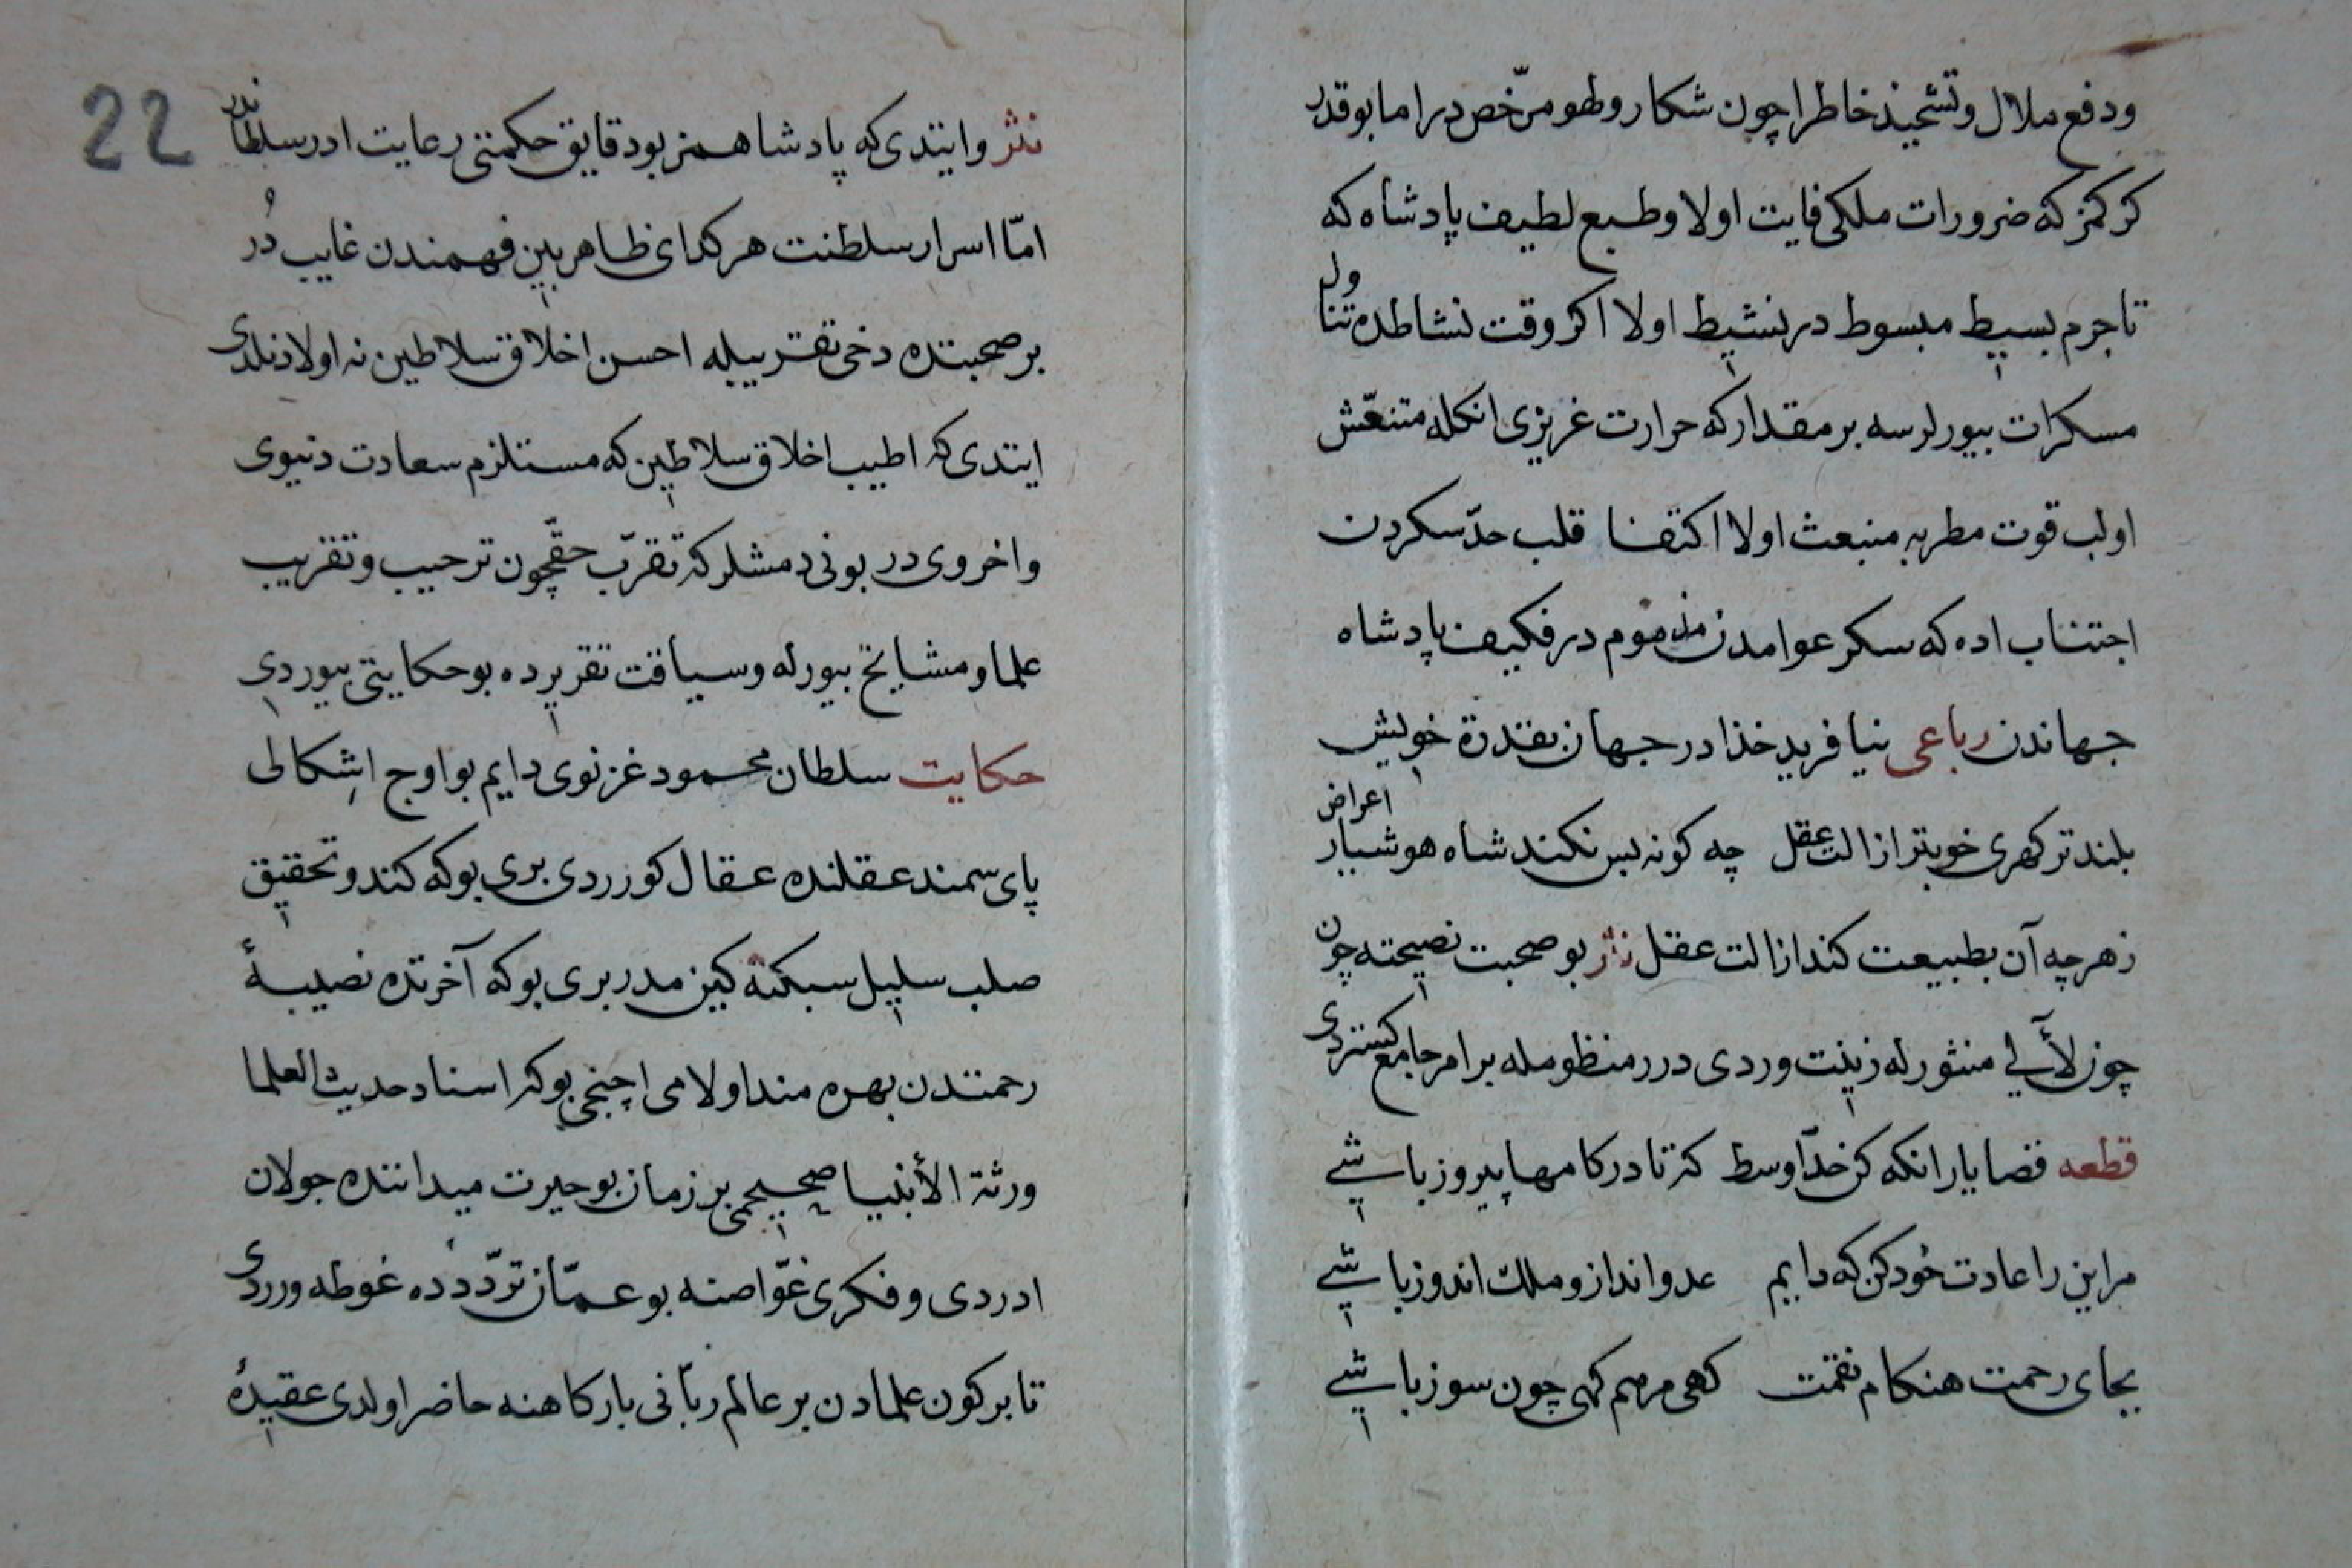 ودفع ملال وتشحیذ خاطر اچون شکار ولهو مرخّص در اما بو قدر
کرکمز که ضرورات ملکی فایت اولا وطبع لطیف پادشاه که
تا جرم بسیط مبسوط در نشیط اولا اکر وقت نشاطده تناول
مسکرات بیورلرسه بر مقدار که حرارت غریزی انکله متنعّش
اولب قوت مطربه منبعث اولا اکتفا قلب حدّ سکردن
اجتناب اده که سکر عوامدن مذموم در فکیف پادشاه
جهاندن رباعی نیافرید خذا در جهان بقدرة خویش
بلندتر کهری خوبتر از الت عقل چه کونه بس نکند شاه هوشیار اعراض
زهرچه آن بطبیعت کند ازالت عقل نثر بو صحبت نصیحته چون
چون لآلی منثورله زینت وردی درر منظومله بر امر جامع کستردی
قطعه قضا یارانکه کن خدّاوسط که تا در کامها پیروز باشی
مر این را عادت خود کن که دایم عدو انداز و ملک اندوز باشی
بجای رحمت هنکام نقمت کهی مرهم کهی چون سوز باشی
22
نثر وایتدی که پادشاهمز بو دقایق حکمتی رعایت ادر سلطاندر
امّا اسرار سلطنت هر کدای ظاهر بین فهمندن غایب دُر
بر صحبتده دخی تقریبله احسن اخلاق سلاطین نه اولا دنلدی
ایتدی که اطیب اخلاق سلاطین که مستلزم سعادت دنیوی
واخروی در بونی دمشلر که تقرّب حقچون ترحیب وتقریب
علما ومشایخ بیورله وسیاقت تقریرده بو حکایتی بیوردی
حکایت سلطان محمود غزنوی دایم بو اوج اشکالی
پای سمند عقلنده عقال کورردی بری بوکه کند وتحقیق
صلب سلیل سبکتکین مدر بری بوکه آخرتده نصیبهٔ
رحمتدن بهره مند اولامی اچنجی بوکه اسناد حدیث العلما
ورثة الأنبیا صحیحمی بر زمان بو حیرت میداننده جولان
ادردی وفکری غوّاصنه بو عمّان تردّدده غوطه ورردی
تا بر کون علمادن بر عالم ربّانی بارکاهنه حاضر اولدی عقیدهٔ